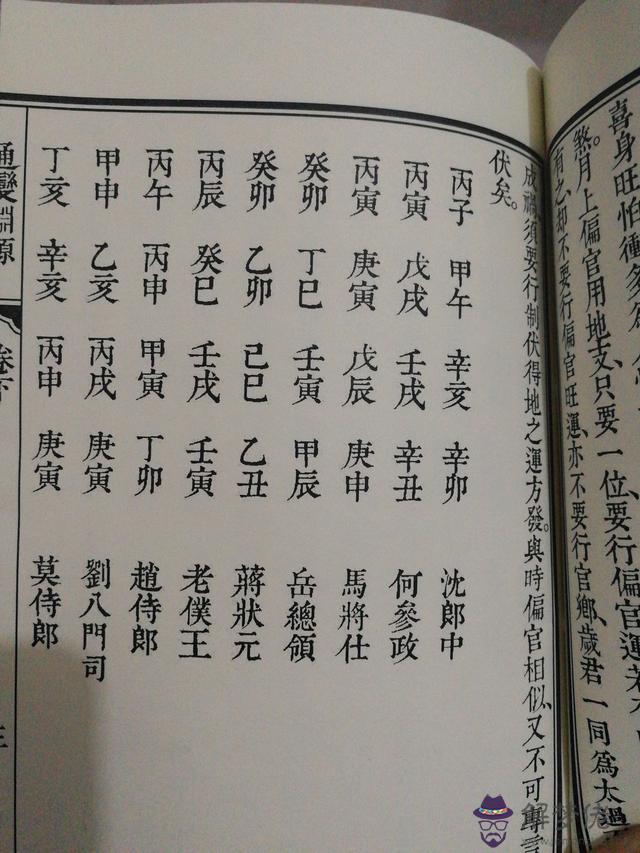 喜身旺怕衝多
煞。月上偏官用地支、只要一位、要行偏官運、若
有之、却不要行偏官旺運、亦不要行官鄉、歲君一同、為太過
須要行制伏得地之運方發。與時偏官相似、又不可專言
伏矣。
丙子 甲午 辛亥 辛卯 沈郎中
丙寅 戊戌 壬戌 辛丑 何參政
丙寅 庚寅 戊辰 庚申 馬將仕
癸卯 丁巳 壬寅 甲辰 岳總領
癸卯 乙卯 己巳 乙丑 蔣狀元
丙辰 癸巳 壬戌 壬寅 老僕王
丙午 丙申 甲寅 丁卯 趙侍郎
甲申 乙亥 丙戌 庚寅 劉八門司
丁亥 辛亥 丙申 庚寅 莫侍郎
通變淵源 卷下
解梦佬